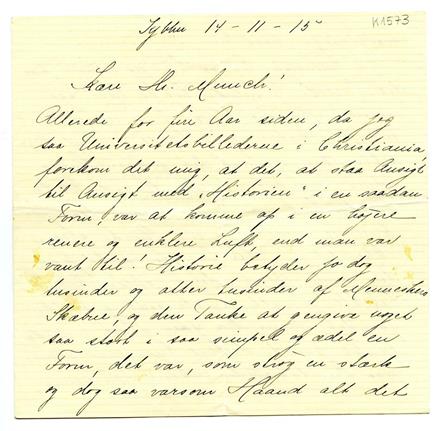 Lybker 14-11-15
K1573
Kære Hr. Munch!
Allerede for fire Aar siden, da jeg
saa Universitetsbillederne i Christiania,
forekom det mig, at det, at staa Ansigt
til Ansigt med „Historien“ i en saadan
Form, var at komme op i en højere
renere og enklere Luft, end man var
vant til! Historie betyder jo dog
tusinder og atter tusinder af Menneskers
Skæbne, og den Tanke at gengive noget
saa stort i saa simpel og ædel en
Form, det var, som strøg en stærk
og dog saa varsom Haand alt det